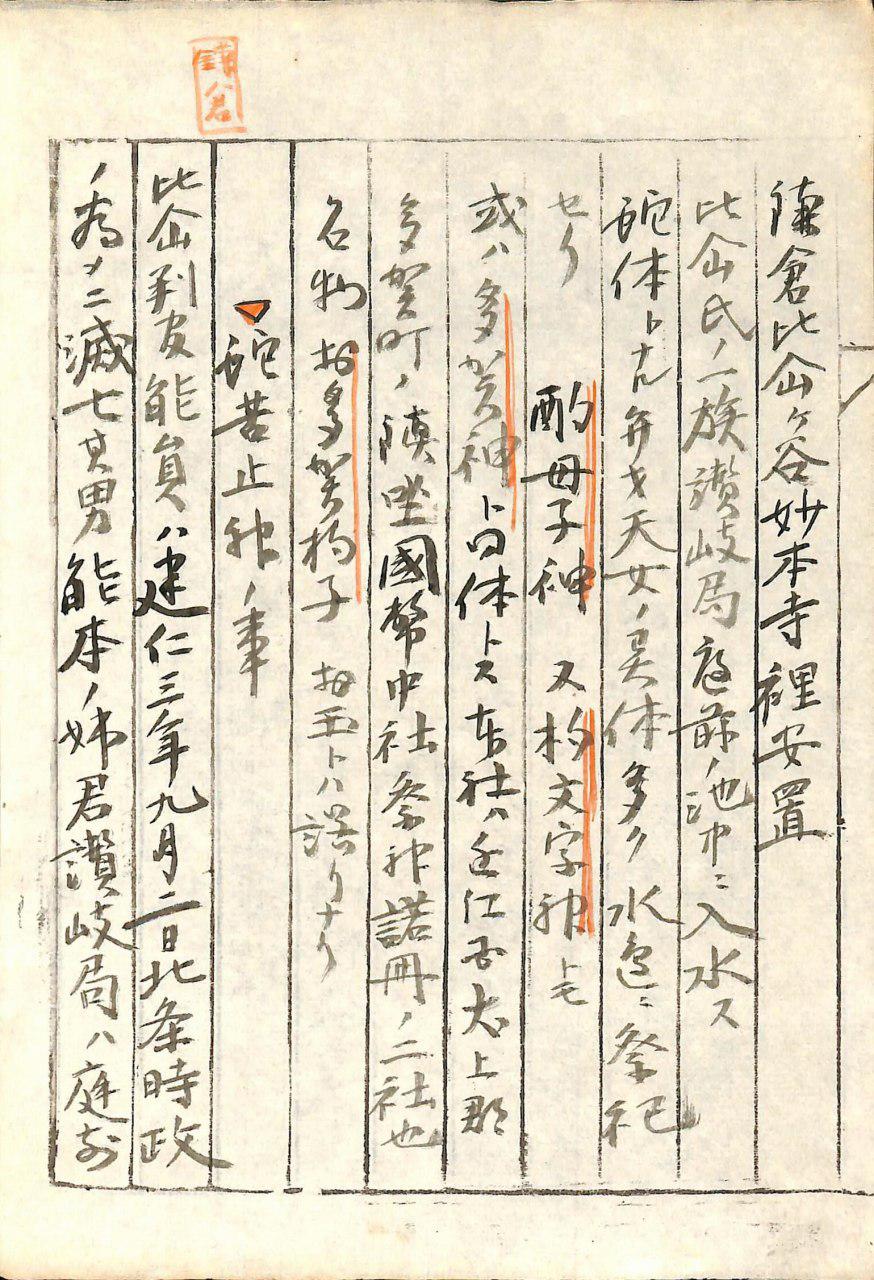 鎌倉
鎌倉比企ヶ谷妙本寺裡安置
比企氏ノ一族讃岐局庭前ノ池中ニ入水ス
蛇体トナル弁才天女ノ異体多ク水辺ニ祭祀
セリ 酌母子神 又杓文字神トモ
或ハ多賀神ト同体トス本社ハ近江国犬上郡
多賀町ノ鎮坐國幣中社祭神諾冊ノ二社也
名物お多賀杓子 お玉トハ誤リナリ
蛇苦止神ノ事
比企判官能員ハ建仁三年九月二日北条時政
ノ為メニ滅七其男能本ノ姉君讃岐局ハ庭前